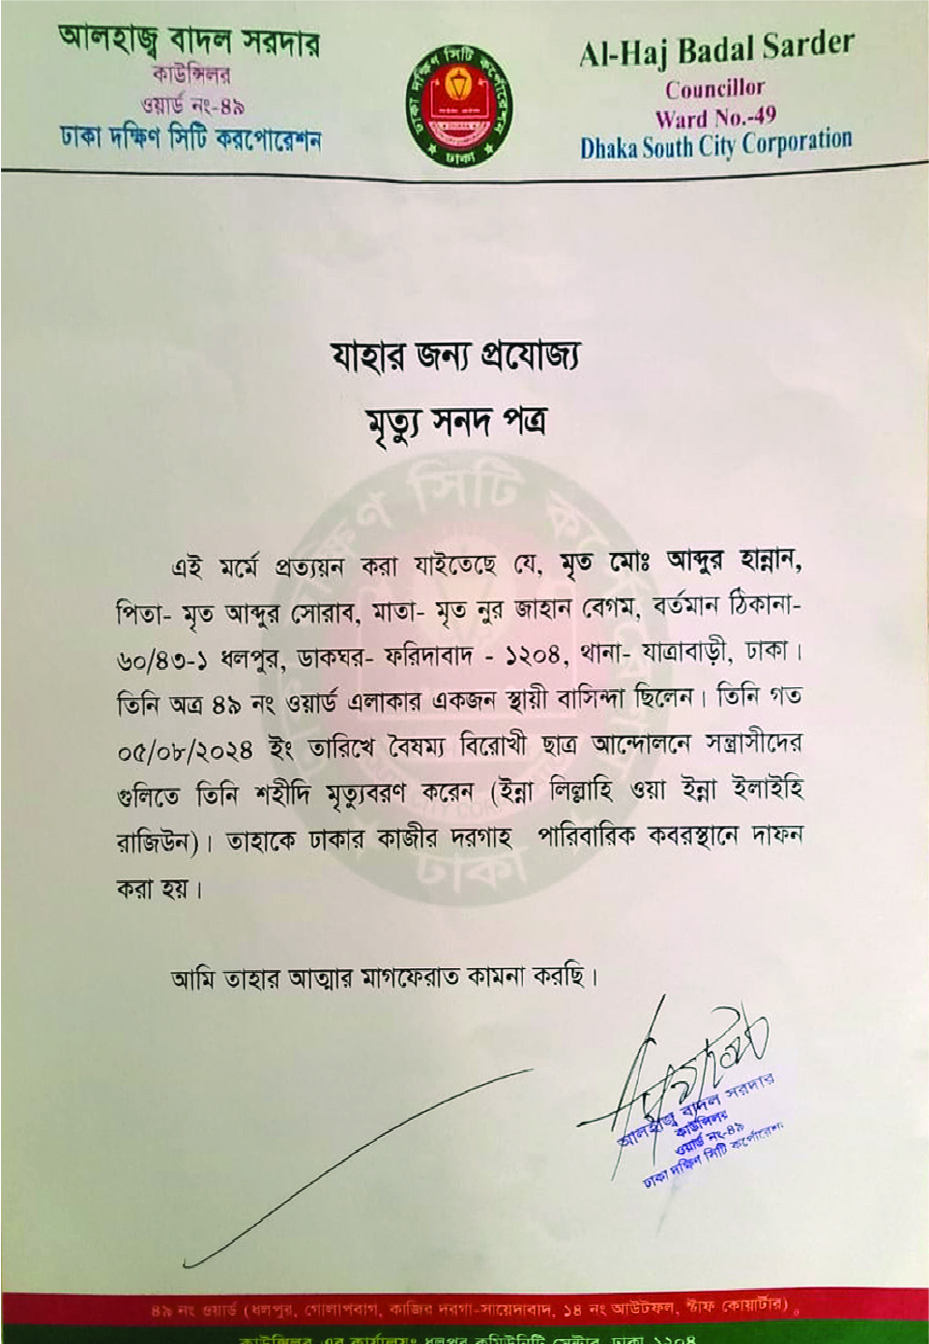 আলহাজ্ব বাদল সরদার
কাউন্সিলর
ওয়ার্ড নং-৪৯
ঢাকা দক্ষিণ সিটি করপোরেশন
ঢাকা দক্ষিণ সিটি কর্পোরেশন
ঢাকা
Al-Haj Badal Sarder
Councillor
Ward No.-49
Dhaka South City Corporation
যাহার জন্য প্রযোজ্য
মৃত্যু সনদ পত্র
এই মর্মে প্রত্যয়ন করা যাইতেছে যে, মৃত মোঃ আব্দুর হান্নান,
পিতা- মৃত আব্দুর সোরাব, মাতা- মৃত নুর জাহান বেগম, বর্তমান ঠিকানা-
৬০/৪৩-১ ধলপুর, ডাকঘর- ফরিদাবাদ - ১২০৪, থানা- যাত্রাবাড়ী, ঢাকা।
তিনি অত্র ৪৯ নং ওয়ার্ড এলাকার একজন স্থায়ী বাসিন্দা ছিলেন। তিনি গত
০৫/০৮/২০২৪ ইং তারিখে বৈষম্য বিরোধী ছাত্র আন্দোলনে সন্ত্রাসীদের
গুলিতে তিনি শহীদি মৃত্যুবরণ করেন (ইন্না লিল্লাহি ওয়া ইন্না ইলাইহি
রাজিউন)। তাহাকে ঢাকার কাজীর দরগাহ পারিবারিক কবরস্থানে দাফন
করা হয়।
আমি তাহার আত্মার মাগফেরাত কামনা করছি।
আলহাজ্ব বাদল সরদার
কাউন্সিলর
ওয়ার্ড নং-৪৯
ঢাকা দক্ষিণ সিটি কর্পোরেশন
৪৯ নং ওয়ার্ড (ধলপুর, গোলাপবাগ, কাজির দরগা-সায়েদাবাদ, ১৪ নং আউটফল, ষ্টাফ কোয়ার্টার)।
কাউন্সিলর এর কার্যালয়ঃ ধলপুর কমিউনিটি সেন্টার, ঢাকা-১২০৪